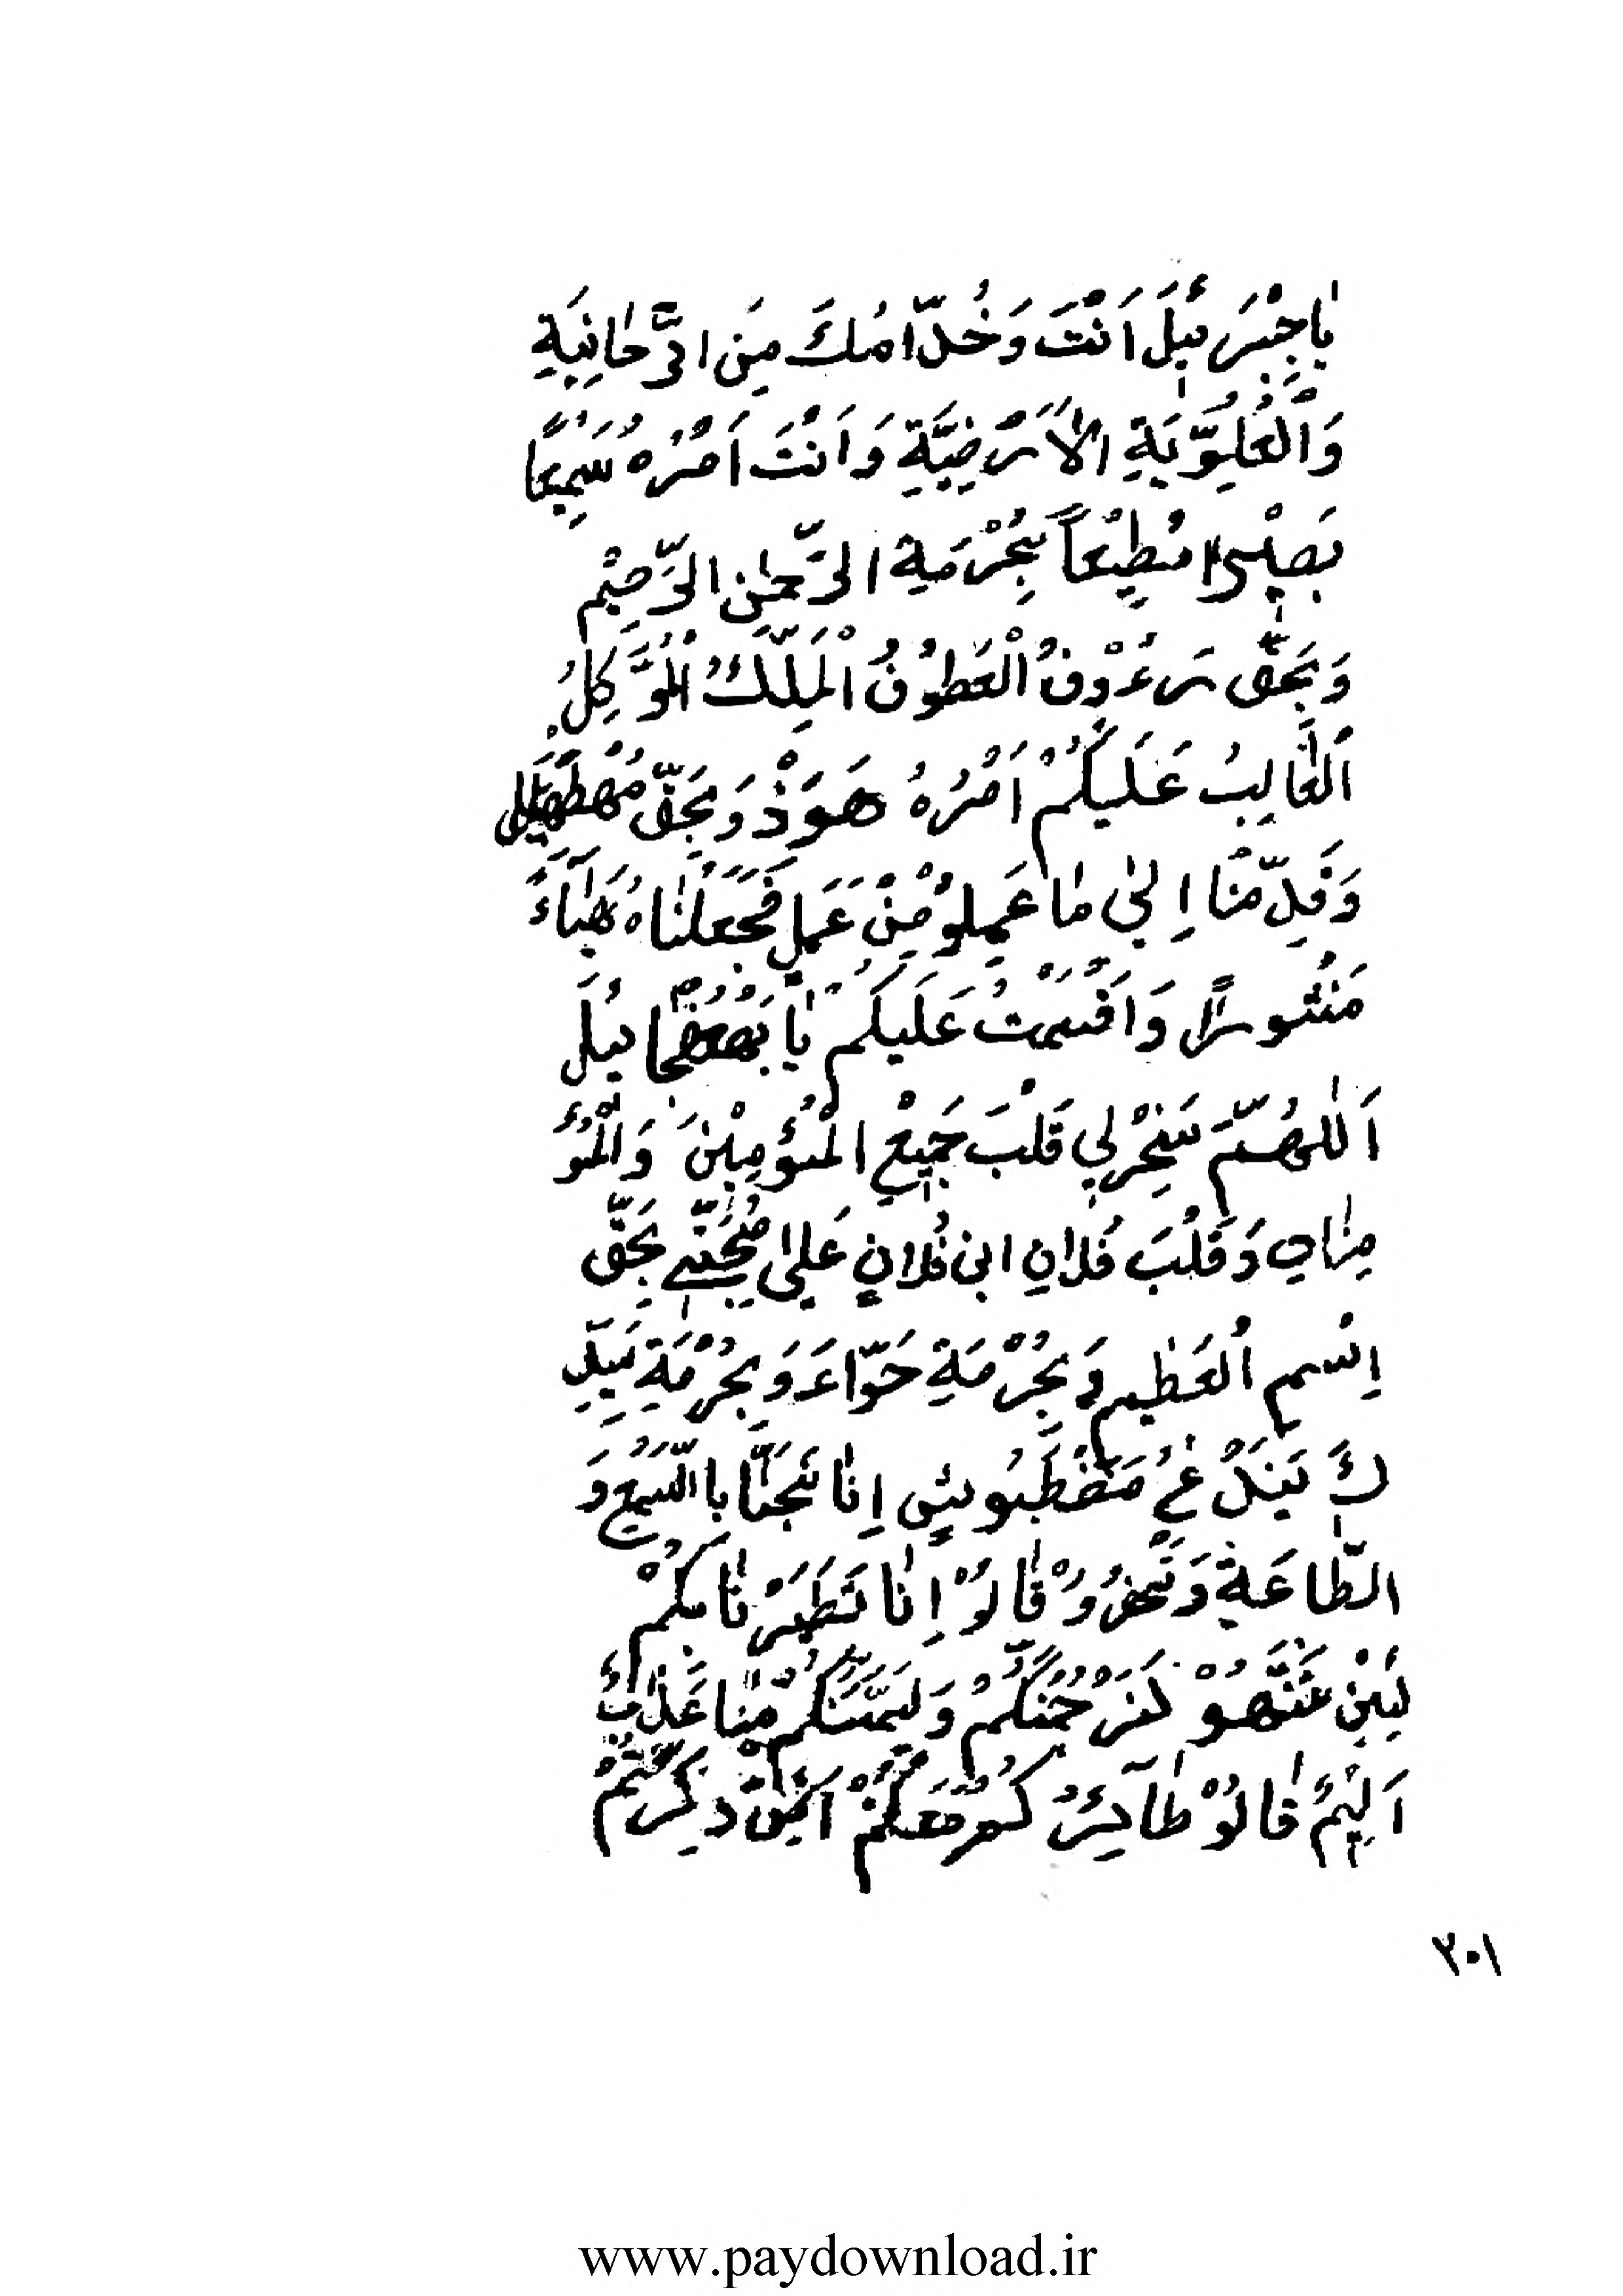 یٰاجِبْرَئیٖلَ اَنْتَ وَخُدّامُكَ مِنَ الرَّحٰانِیَةِ
وَالْعُلِوّیَةِ الاَرْضِیَّةِ وَ اَنْتَ اَمْرُهُ سَمِیعًا
بَصیٖرا مُطیٖعاً بِحُرْمَةِ الرَّحمٰنِ الرَّحیٖم
وَبِحَقّ رَءُوْفُ الْعَطُوْفُ الْمَلِكُ الْمُوَّكِلُ
اَلْغٰالِبُ عَلَیكُمْ اَمْرُهُ هَوَذْ وَبِحَقّ
وَقَدِّمْنَا اِلیٰ مٰا عَمِلوُ مِنْ عَمَلٍ فَجَعَلْنٰاهُ هَبٰآءً
مَنْثوراً وَاَقْسَمْتُ عَلَیكُم یٰا
اَللٰهُمَّ سَخِرْلی قَلْبَ جَمیٖعِ الْمُؤمِنیْنَ وَالْمُؤ
مِنٰاتِ وَقَلْبَ فُلانِ ابن فُلانٍ عَلیٰ مُحَبَّتیٖ بِحَقّ
اِسْمِ الْعَظیٖمِ وَ بِحُرْمَةِ حَوّاءَ وَبِحُرْمَةِ
اِنٰا بِاالسَّمْعِ وَ
الطّاعَةِ قٰالوُ اِنٰا تَطَیَرْنٰا بِكُمْ
لَئِنْ تَنْتَهوُ لَنَرْجُمَنَّكُمْ وَلَیَمَسَّنَكُمْ مِنٰا عَذٰابٌ
اَلیٖمٌ قٰالوُ طٰآئِرُ كُمْ مَعَكُمْ اَئِنْ ذُكِرْتُمْ
٢٠١
www.paydownload.ir